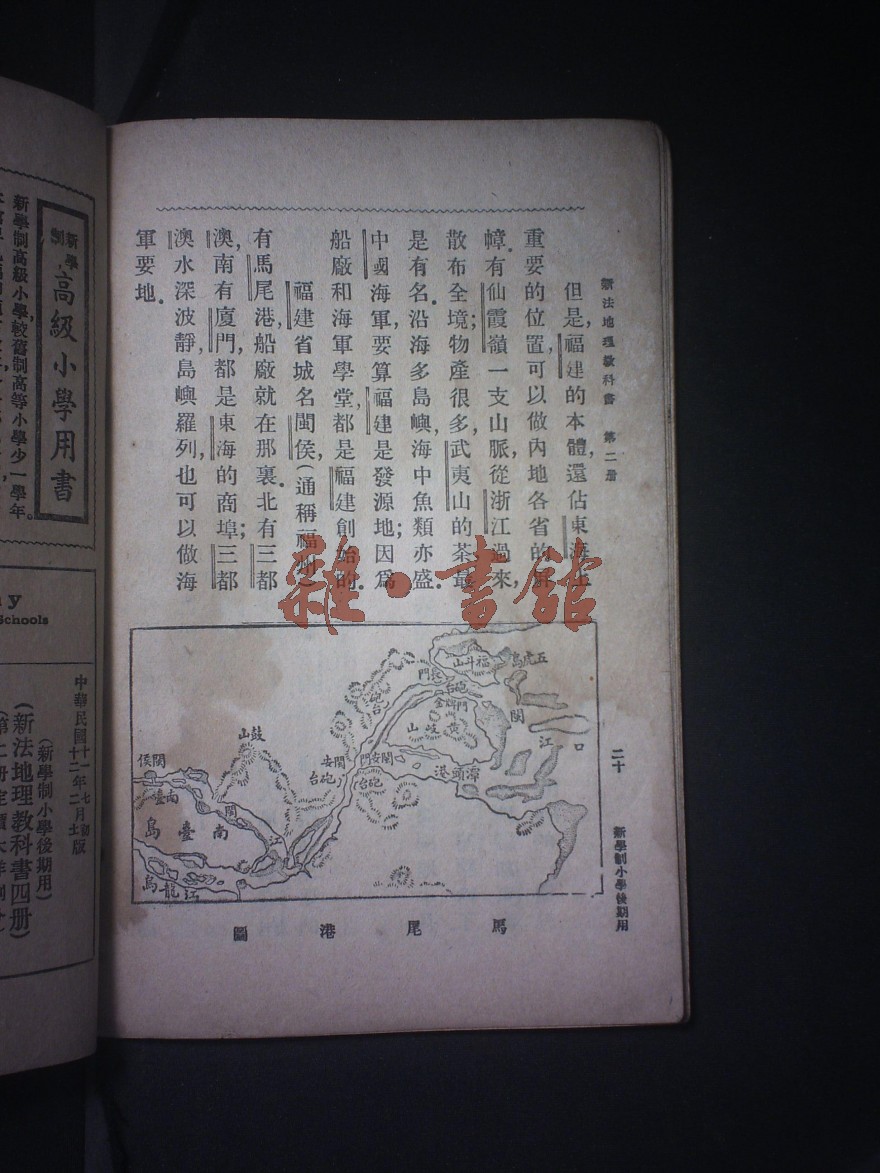 新法地理教科書 第二册
二十
新學制小學後期用
但是,福建的本體,還佔東海上
重要的位置,可以做內地各省的屏
幛.有仙霞嶺一支山脈,從浙江過來,
散布全境;物產很多,武夷山的茶最
是有名.沿海多島嶼,海中魚類亦盛.
中國海軍,要算福建是發源地;因爲
船廠和海軍學堂,都是福建創始的.
福建省城名閩侯(通稱福州)
有馬尾港,船廠就在那裏.北有三都
澳,南有廈門,都是東海的商埠;三都
澳水深波靜,島嶼羅列,也可以做海
軍要地.
五虎島
福斗山
長門
砲台
金牌門
閩江口
黃岐山
砲台
閩安
砲台
閩安門
砲台
潭頭港
鼓山
閩侯
南臺
閩江
南臺島
烏龍江
馬尾港圖
新學制
高級小學用書
新學制高級小學,較舊制高等小學少一學年。
ay
Schools
中華民國
十一年七月初版
十二年二月
(新學制小學後期用)
(新法地理教科書四册)
雜·書館